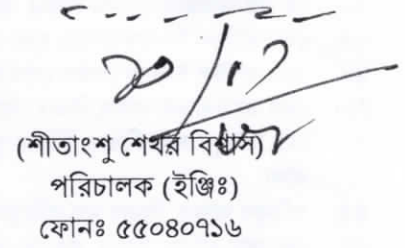 (শীতাংশু শেখর বিশ্বাস)
পরিচালক (ইঞ্জিঃ)
ফোনঃ ৫৫০৪০৭১৬